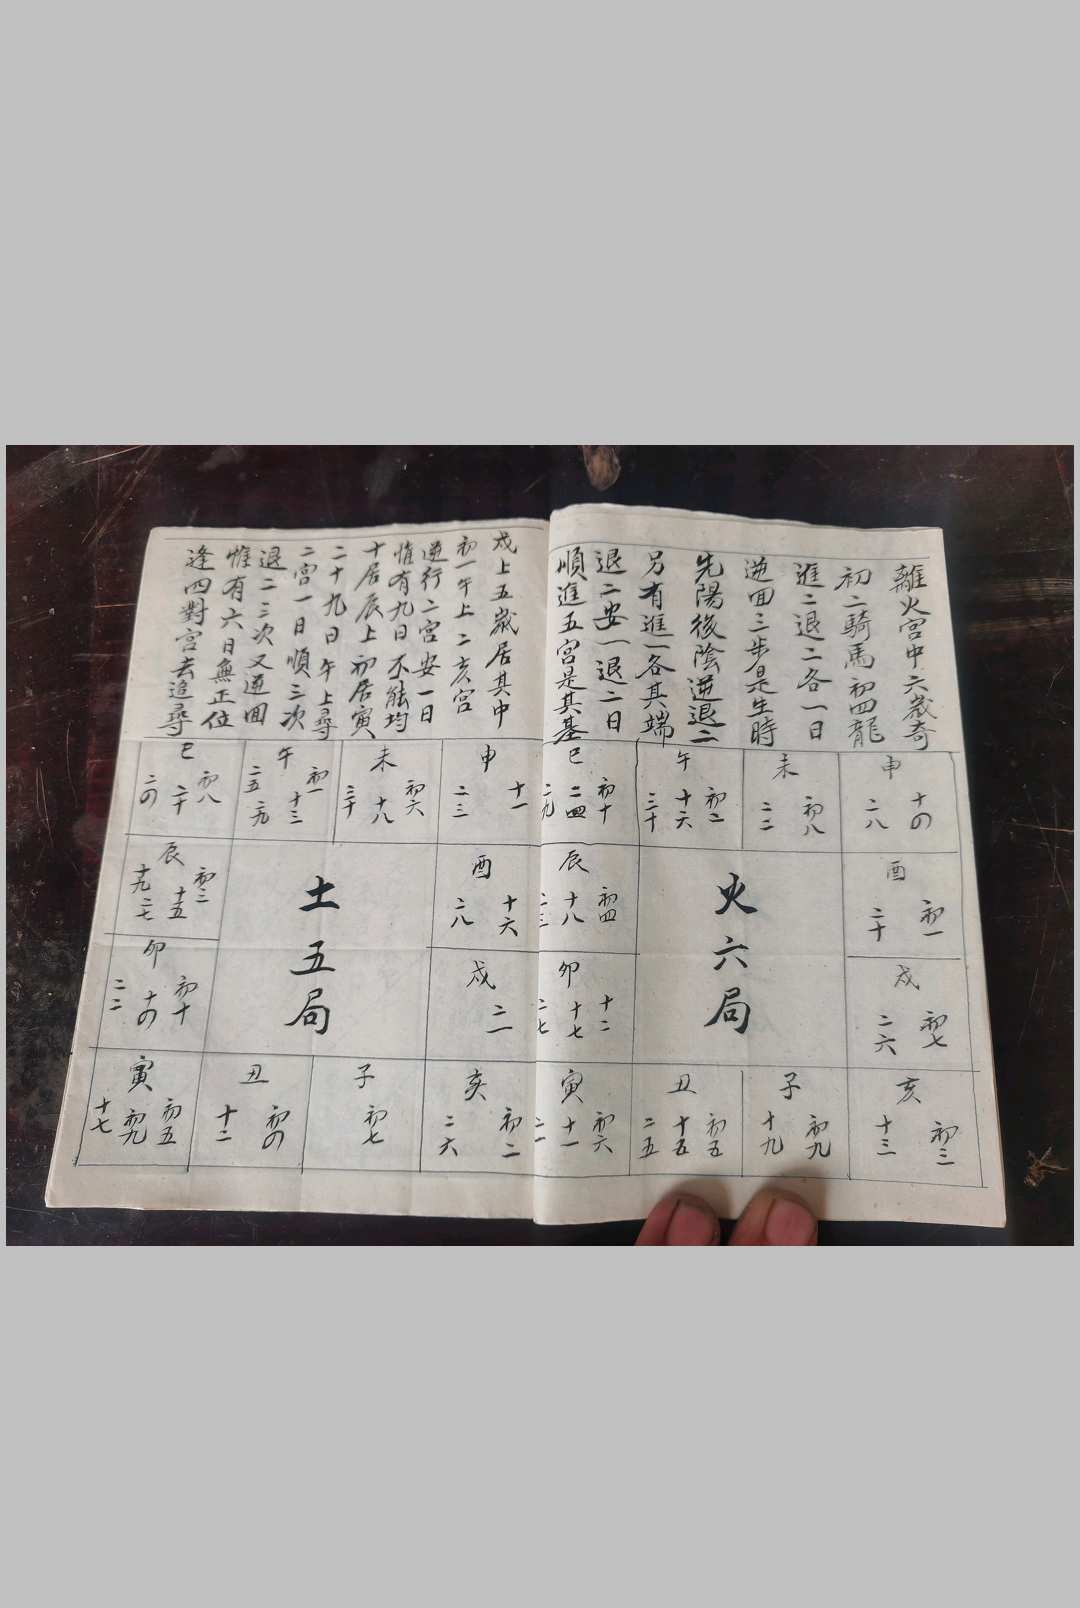 離火宫中六歲奇
初二騎馬初四龍
進二退二各一日
逆回三步是生時
先陽後陰逆退二
另有進一各其端
退二安一退二日
順進五宫是其基
巳
初十
二四
二九
午
初二
十六
三十
未
初八
二二
申
十四
二八
辰
初四
十八
二三
酉
初一
二十
卯
十二
十七
二七
戍
初七
二六
寅
初六
十一
二一
丑
初五
十五
二五
子
初九
十九
亥
初三
十三
火六局
戍上五歲居其中
初一午上二亥宫
逆行二宫安一日
惟有九日不能均
十居辰上初居寅
二十九日午上尋
二宫一日順三次
退二三次又逆回
惟有六日無正位
逢四對宫去追尋
巳
初八
二十
二四
午
初一
十三
二五
二九
未
初六
十八
三十
申
十一
二三
辰
初三
十五
十九
二七
酉
十六
二八
卯
初十
十四
二二
戍
二一
寅
初五
初九
十七
丑
初四
十二
子
初七
亥
初二
二六
土五局